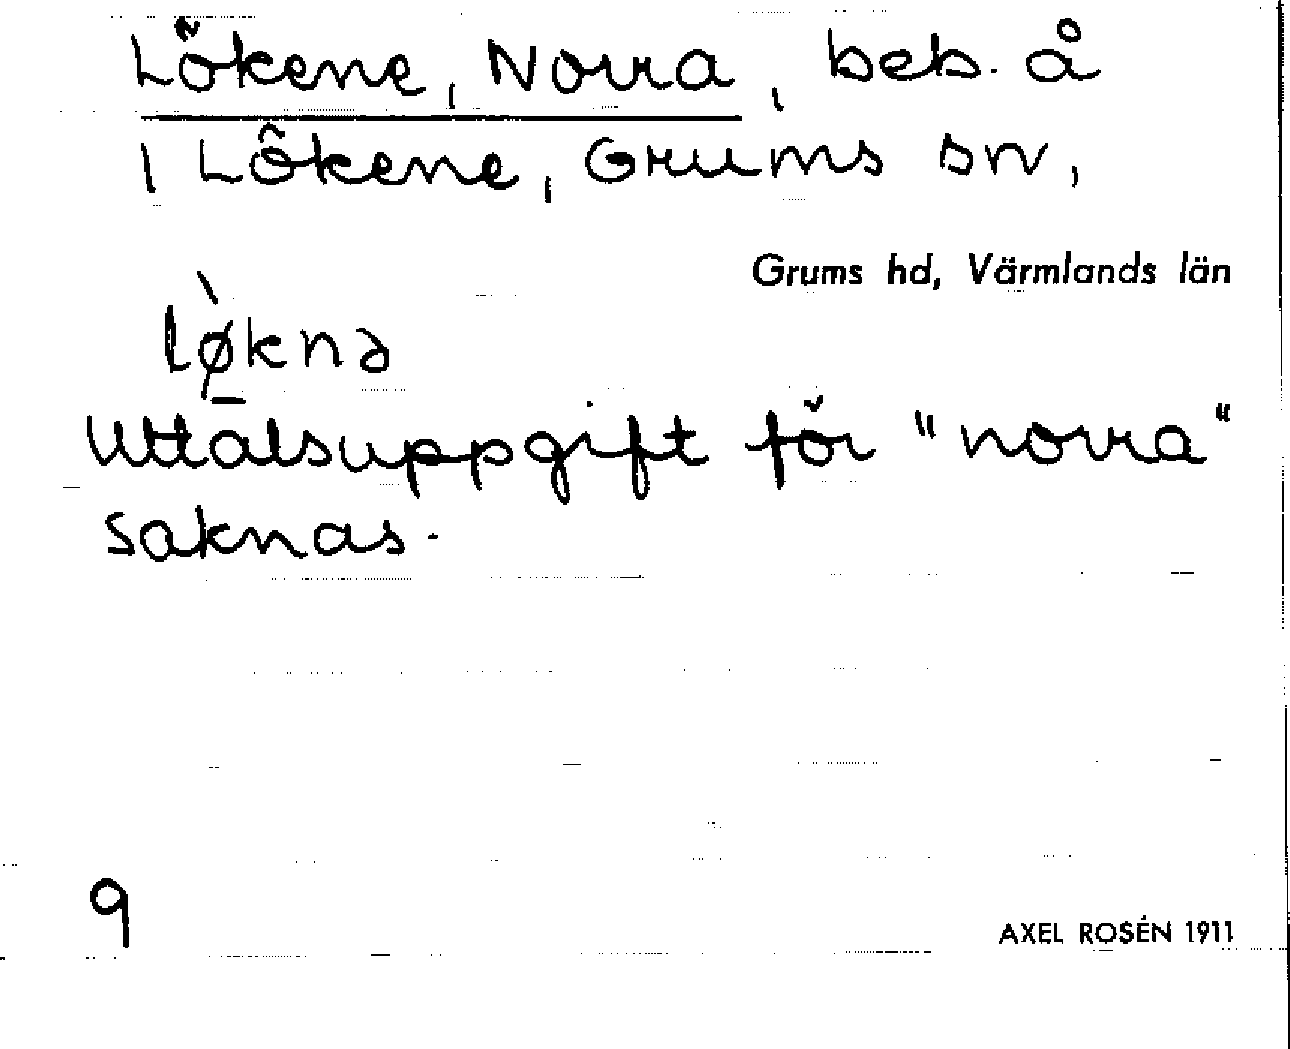 Lökene, Norra, beb. å
1 Lökene, Grums sn,
Grums hd, Värmlands län
lø̀knə
Uttalsuppgift för "norra"
saknas.
9
AXEL ROSÉN 1911